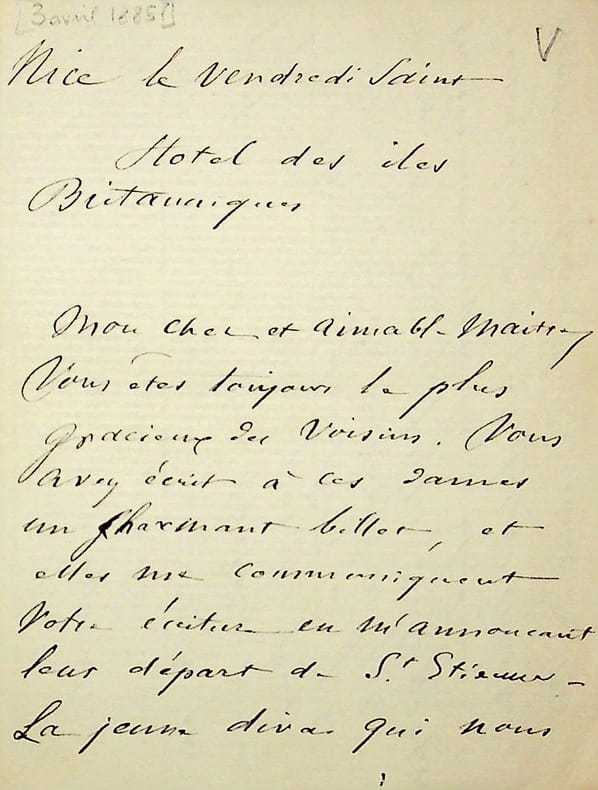 [3 avril 1885]
V
Nice le vendredi Saint
Hotel des iles
Britanniques
Mon cher et aimable Maitre,
Vous êtes toujours le plus
gracieux des Voisins. Vous
avez écrit à ces dames
un charmant billet, et
elles me communiquent
Votre écriture en m'annoncant
leur départ de St Etienne_
La jeune diva qui nous